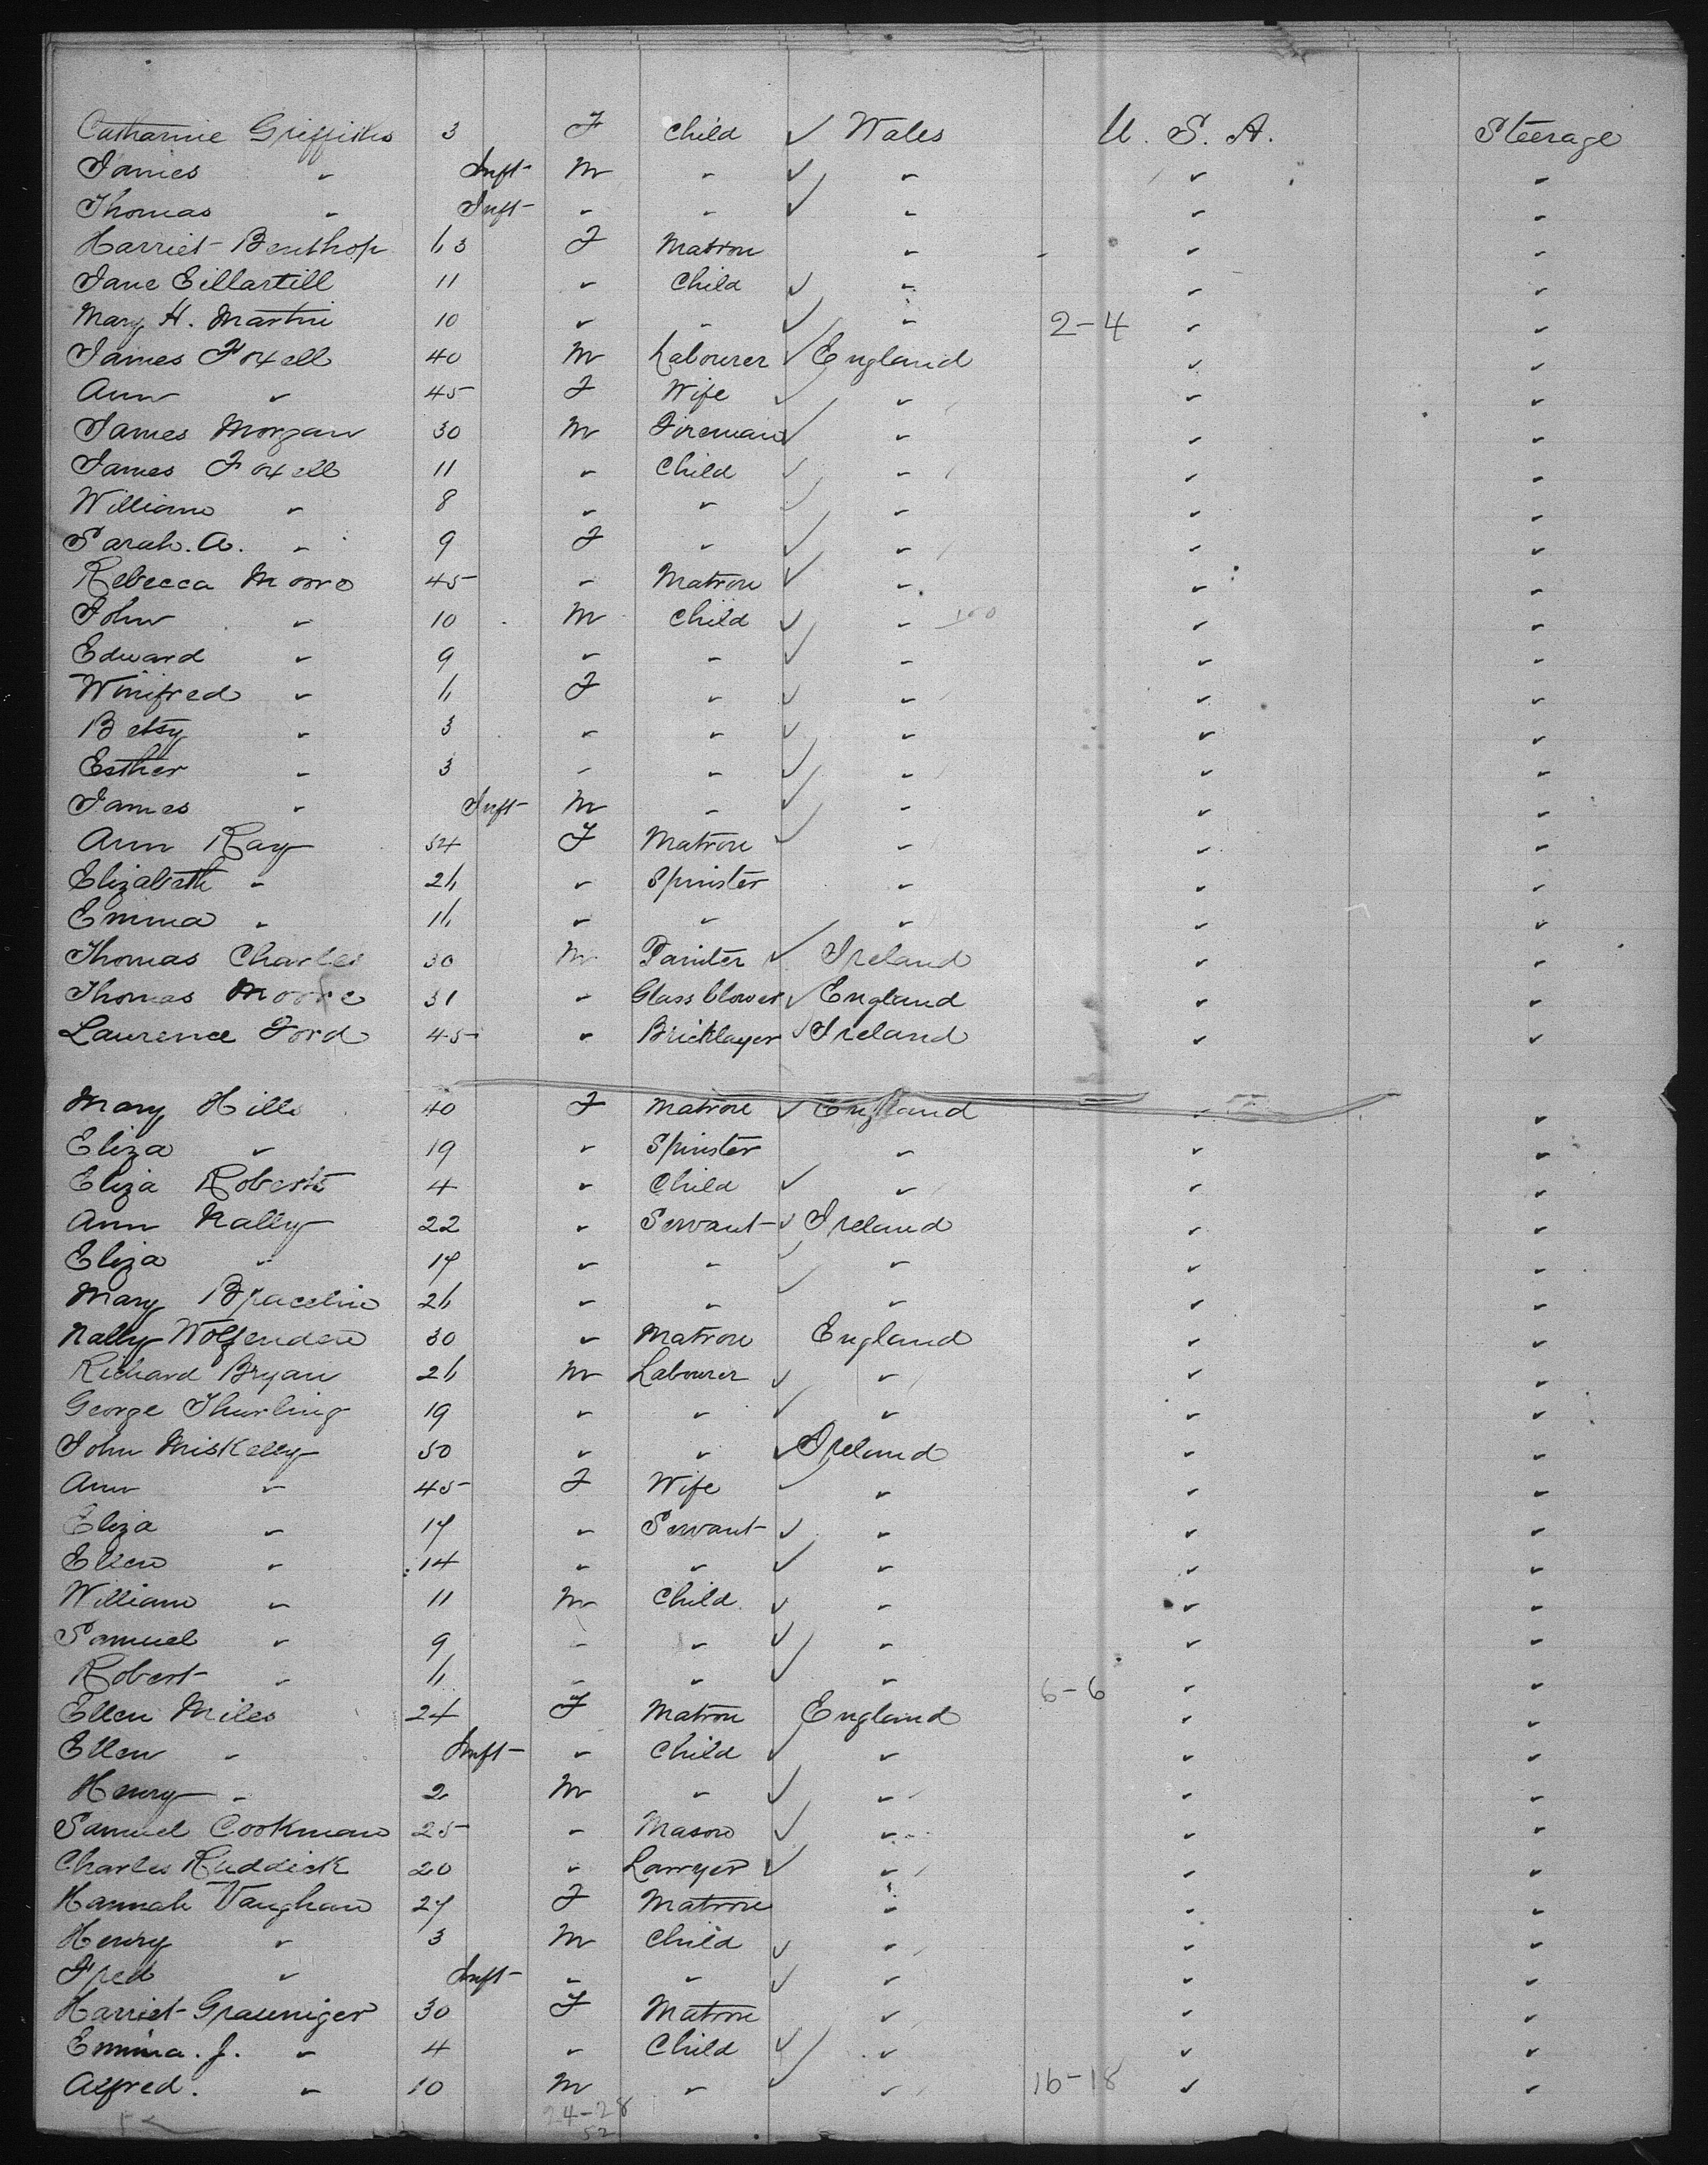 Catharine Griffiths 3 F Child ✓ Wales U. S. A. Steerage
James " Inft M " ✓ " " "
Thomas " Inft " " ✓ " " "
Harriet Benthop 63 F Matron " " "
Jane Eillartill 11 " Child ✓ " " "
Mary H. Martin 10 " " ✓ " 2-4 " "
James Foxell 40 M Labourer ✓ England " "
Ann " 45 F Wife ✓ " " "
James Morgan 30 M Fireman ✓ " " "
James Foxell 11 " Child ✓ " " "
William " 8 " " ✓ " " "
Sarah. A. " 9 F " ✓ " " "
Rebecca Moore 45 " Matron ✓ " " "
John " 10 M Child ✓ " " "
Edward " 9 " " ✓ " " "
Winifred " 6 F " ✓ " " "
Betsy " 3 " " ✓ " " "
Esther " 3 " " ✓ " " "
James " Inft M " ✓ " " "
Ann Ray 54 F Matron ✓ " " "
Elizabeth " 26 " Spinster " " "
Emma " 16 " " " " "
Thomas Charles 30 M Painter ✓ Ireland " "
Thomas Moore 31 " Glass blower ✓ England " "
Laurence Ford 45 " Bricklayer ✓ Ireland " "
Mary Hills 40 F Matron ✓ England " "
Eliza " 19 " Spinster " " "
Eliza Roberts 4 " Child ✓ " " "
Ann Nally 22 " Servant ✓ Ireland " "
Eliza " 17 " " ✓ " " "
Mary Bracelin 26 " " ✓ " " "
Nally Wolfenden 30 " Matron England " "
Richard Bryan 26 M Labourer ✓ " " "
George Thurling 19 " " ✓ " " "
John Miskelly 50 " " ✓ Ireland " "
Ann " 45 F Wife ✓ " " "
Eliza " 17 " Servant ✓ " " "
Ellen " 14 " " ✓ " " "
William " 11 M Child ✓ " " "
Samuel " 9 " " ✓ " " "
Robert " 6 " " ✓ " 6-6 " "
Ellen Miles 24 F Matron England " "
Ellen " Inft " Child ✓ " " "
Henry " 2 M " ✓ " " "
Samuel Cookman 25 " Mason ✓ " " "
Charles Ruddick 20 " Lawyer ✓ " " "
Hannah Vaughan 27 F Matron " " "
Henry " 3 M Child ✓ " " "
Fred " Inft " " ✓ " " "
Harriet Grauniger 30 F Matron " " "
Emma. J. " 4 " Child ✓ " " "
Alfred. " 10 M " ✓ " 16-18 " "
24-28
52